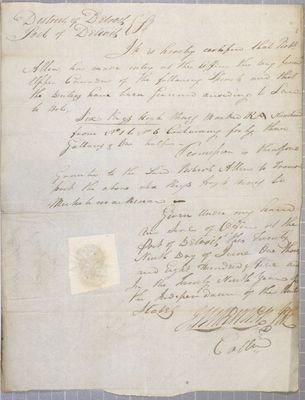 District of Detroit
Port of Detroit
It is hereby certified that Robt
Allen has made entry at this Office this day from
Upper Canada of the following Spirits and that
the duties have been secured according to Law
to wit,
Six Kegs High Wines Marked RA Numbered
from No 1 to No 6 Containing forty three
Gallons & one half
Permission is therefore
Granted to the said Robert Allen to Trans
port the above six Kegs High Wines to
Michilimackinac
Given under my hand
and seal of Office at the
Port of Detroit this Twenty
Ninth Day of June One thou
sand Eight Hundred &
In the twenty Ninth Year of
the Independence of the United
States
Collr